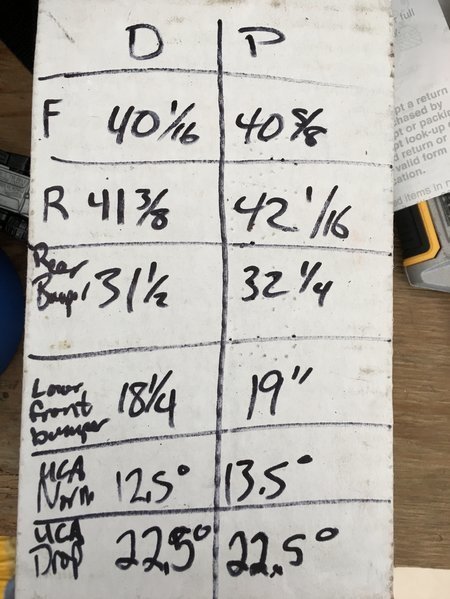 D P
F 40 1/16 40 5/8
R 41 3/8 42 1/16
Rear Bumper 31 1/2 32 1/4
Lower front bumper 18 1/4 19"
UCA Norm 12.5° 13.5°
UCA Drop 22.5° 22.5°
full
pt a return
chased by
pt or packi
pt look-up
d return or
valid form
cation.
ed items in n